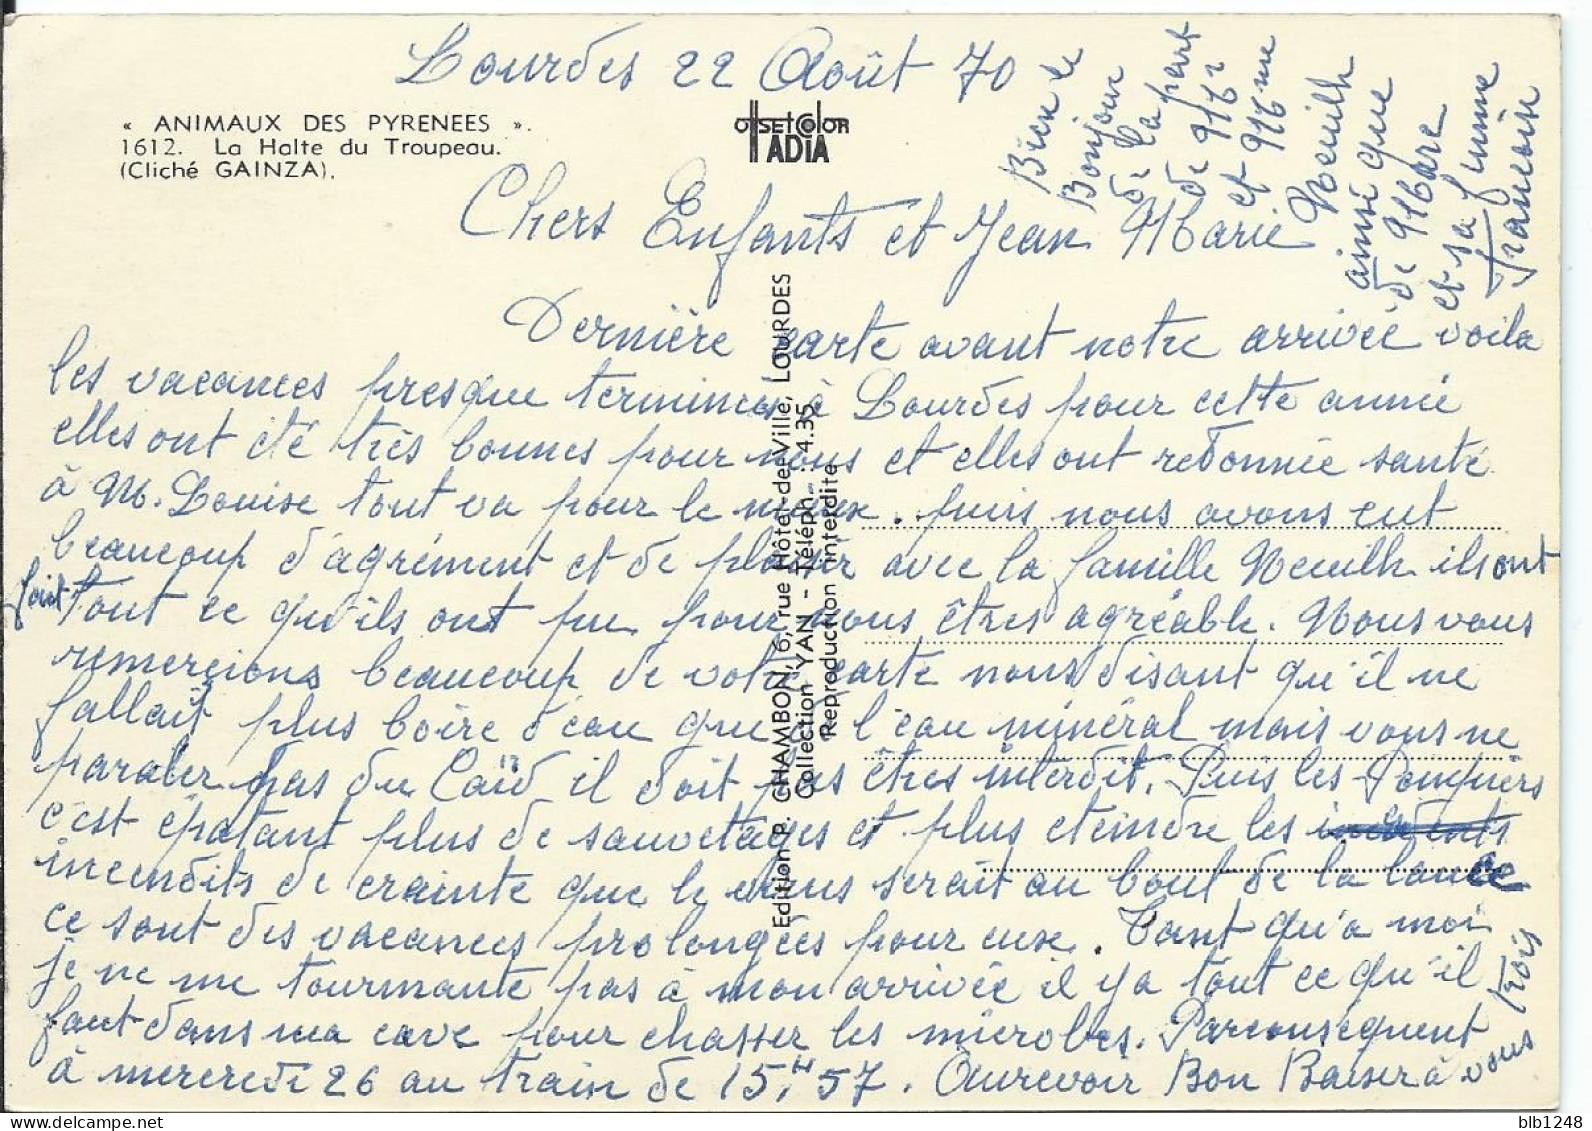 Lourdes 22 Août 70
« ANIMAUX DES PYRENEES ».
1612. La Halte du Troupeau.
(Cliché GAINZA).
OffSEtColOR
IADIA
Chers Enfants et Jean Marie
Dernière carte avant notre arrivée voila
les vacances presque terminées à Lourdes pour cette année
elles ont été très bonnes pour nous et elles ont redonnée santé
à M. Louise tout va pour le mieux. puis nous avons eut
beaucoup d'agrément et de plaisir avec la famille Neuilh ils ont
fait tout ce qu'ils ont pu pour nous êtres agréable. Nous vous
remercions beaucoup de votre carte nous disant qu'il ne
fallait plus boire d'eau que de l'eau minéral mais vous ne
parler pas du Caïd il doit pas êtres interdit. Puis les Pompiers
c'est épatant plus de sauvetages et plus eteindre les
incendits de crainte que le virus serait au bout de la lance
ce sont des vacances prolongées pour eux. Tant qu'a moi
je ne me tourmante pas à mon arrivée il y a tout ce qu'il
faut dans ma cave pour chasser les microbes. Parconsequent
à mercredi 26 au train de 15H57. Aurevoir Bon Baiser à vous trois
Bien le
Bonjour
de la part
de Mr
et Mme
Neuilh
ainsi que
de Marc
et sa femme
Francoise
Edition P. CHAMBON, 6, rue Hôtel-de-Ville, LOURDES
Collection YAN - Téléph. : 4.35
Reproduction interdite
blb1248